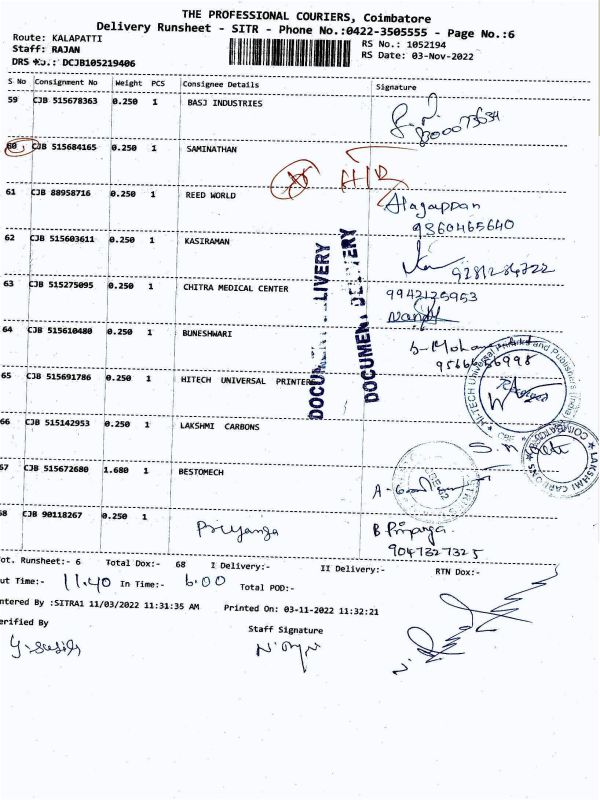 THE PROFESSIONAL COURIERS, Coimbatore
Delivery Runsheet - SITR - Phone No.:0422-3505555 - Page No.:6
Route: KALAPATTI
RS No.: 1052194
Staff: RAJAN
RS Date: 03-Nov-2022
DRS No.: DCJB105219406
S No Consignment No Weight PCS Consignee Details Signature
59 CJB 515678363 0.250 1 BASJ INDUSTRIES
60 CJB 515684165 0.250 1 SAMINATHAN
61 CJB 88958716 0.250 1 REED WORLD Alagappan
9360465640
62 CJB 515603611 0.250 1 KASIRAMAN
9281234722
63 CJB 515275095 0.250 1 CHITRA MEDICAL CENTER 9942125953
64 CJB 515610480 0.250 1 BUNESHWARI
65 CJB 515691786 0.250 1 HITECH UNIVERSAL PRINTERS
66 CJB 515142953 0.250 1 LAKSHMI CARBONS
67 CJB 515672680 1.680 1 BESTOMECH
68 CJB 90118267 0.250 1 Priyanga B Priyanga
9047327325
DOCUMENT DELIVERY
DOCUMENT DELIVERY
Tot. Runsheet:- 6 Total Dox:- 68 I Delivery:- II Delivery:- RTN Dox:-
Out Time:- 11.40 In Time:- 6.00 Total POD:-
Entered By :SITRA1 11/03/2022 11:31:35 AM Printed On: 03-11-2022 11:32:21
Verified By
Staff Signature